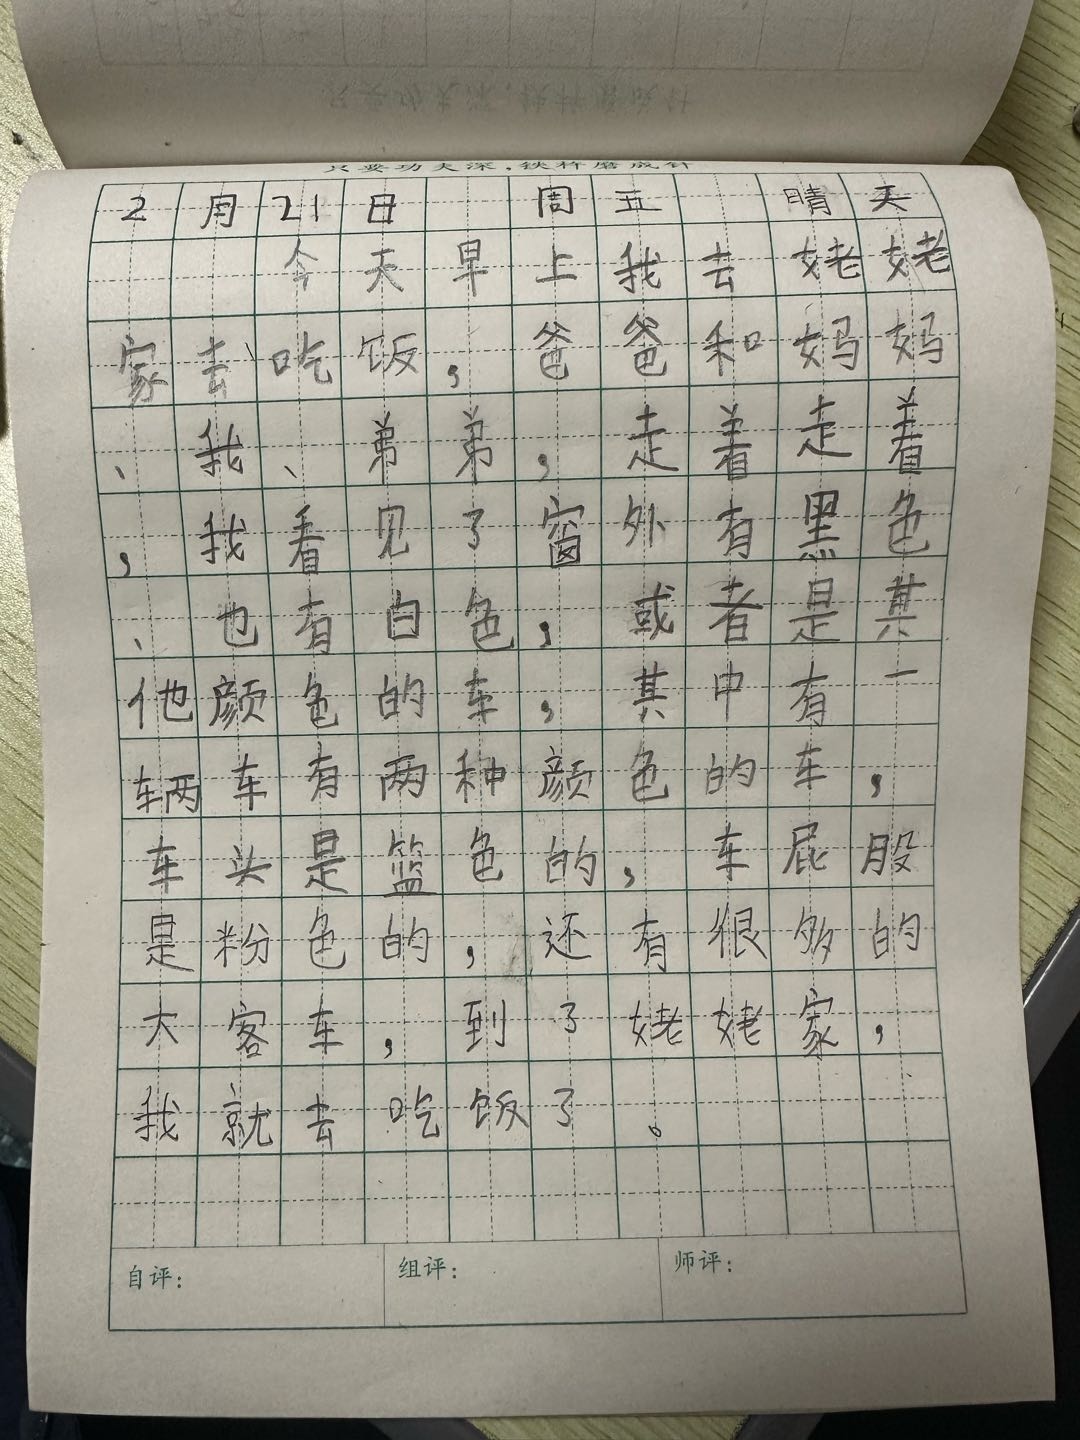 只要功夫深,铁杵磨成针
2月21日 周五 晴天
今天早上我去姥姥
家去吃饭,爸爸和妈妈
、我、弟弟,走着走着
,我看见了窗外有黑色
、也有白色,或者是其
他颜色的车,其中有一
辆车有两种颜色的车,
车头是篮色的,车屁股
是粉色的,还有很多的
大客车,到了姥姥家,
我就去吃饭了。
自评: 组评: 师评: